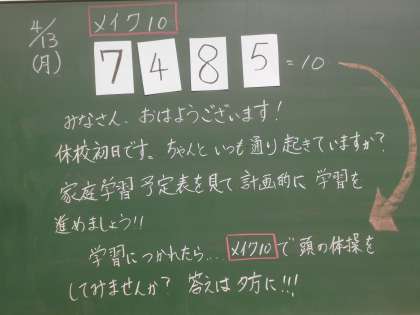 4/13
(月)
メイク10
7 4 8 5 =10
みなさん、おはようございます!
休校初日です。ちゃんといつも通り起きていますか?
家庭学習予定表を見て計画的に学習を
進めましょう!!
学習につかれたら...メイク10で頭の体操を
してみませんか? 答えは夕方に!!!